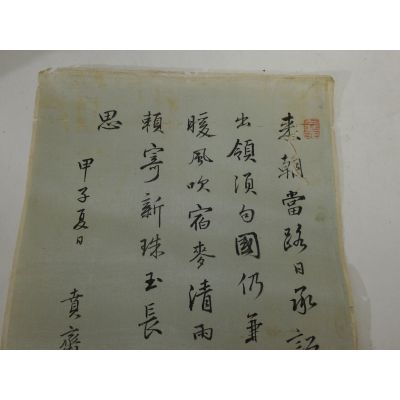 来朝當路日承詔
出領須句國仍兼
暖風吹宿麥清雨
賴寄新珠玉長
思
甲子夏日 賁齋